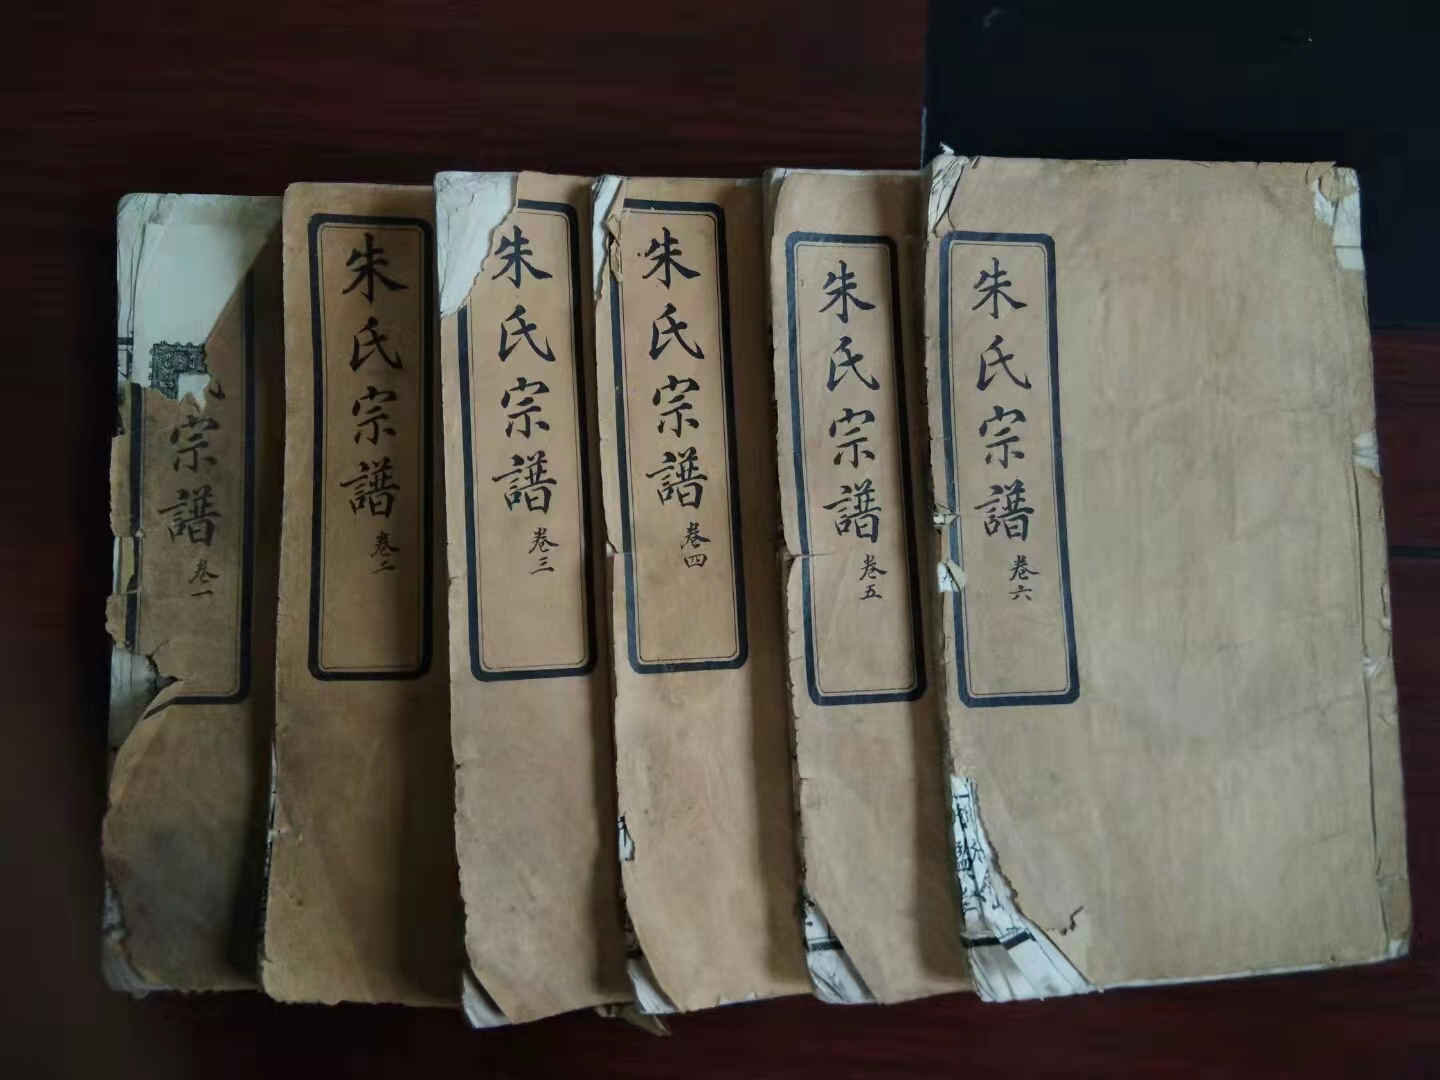 宗譜
卷一
朱氏宗譜
卷二
朱氏宗譜
卷三
朱氏宗譜
卷四
朱氏宗譜
卷五
朱氏宗譜
卷六